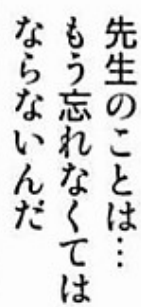 先生のことは…
もう忘れなくては
ならないんだ